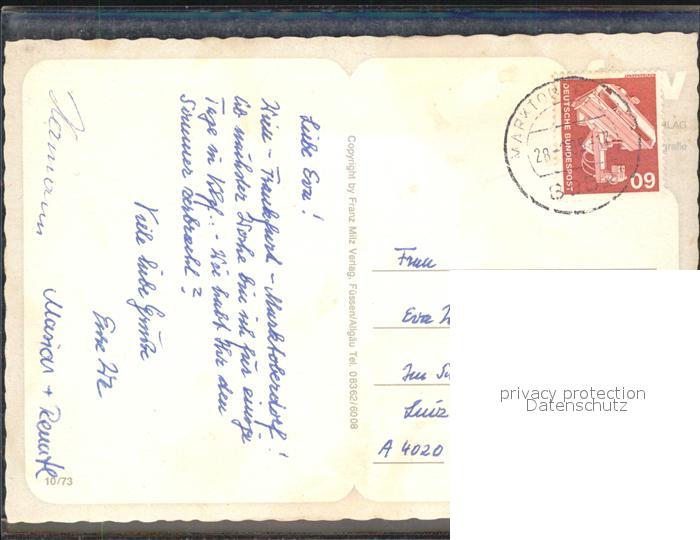 Liebe Eva!
Wien - Frankfurt - Marktoberdorf!
bin ich für einige
Tage in - Wie habt Ihr den
Sommer verbracht?
Viele liebe Grüße
Eure
Hermann
Marion + Renate
10/73
Copyright by Franz Milz Verlag, Füssen/Allgäu Tel. 08362/6008
DEUTSCHE BUNDESPOST
60
MARKTO
28
895
Frau
Eva
Im
Linz
A 4020
privacy protection
Datenschutz